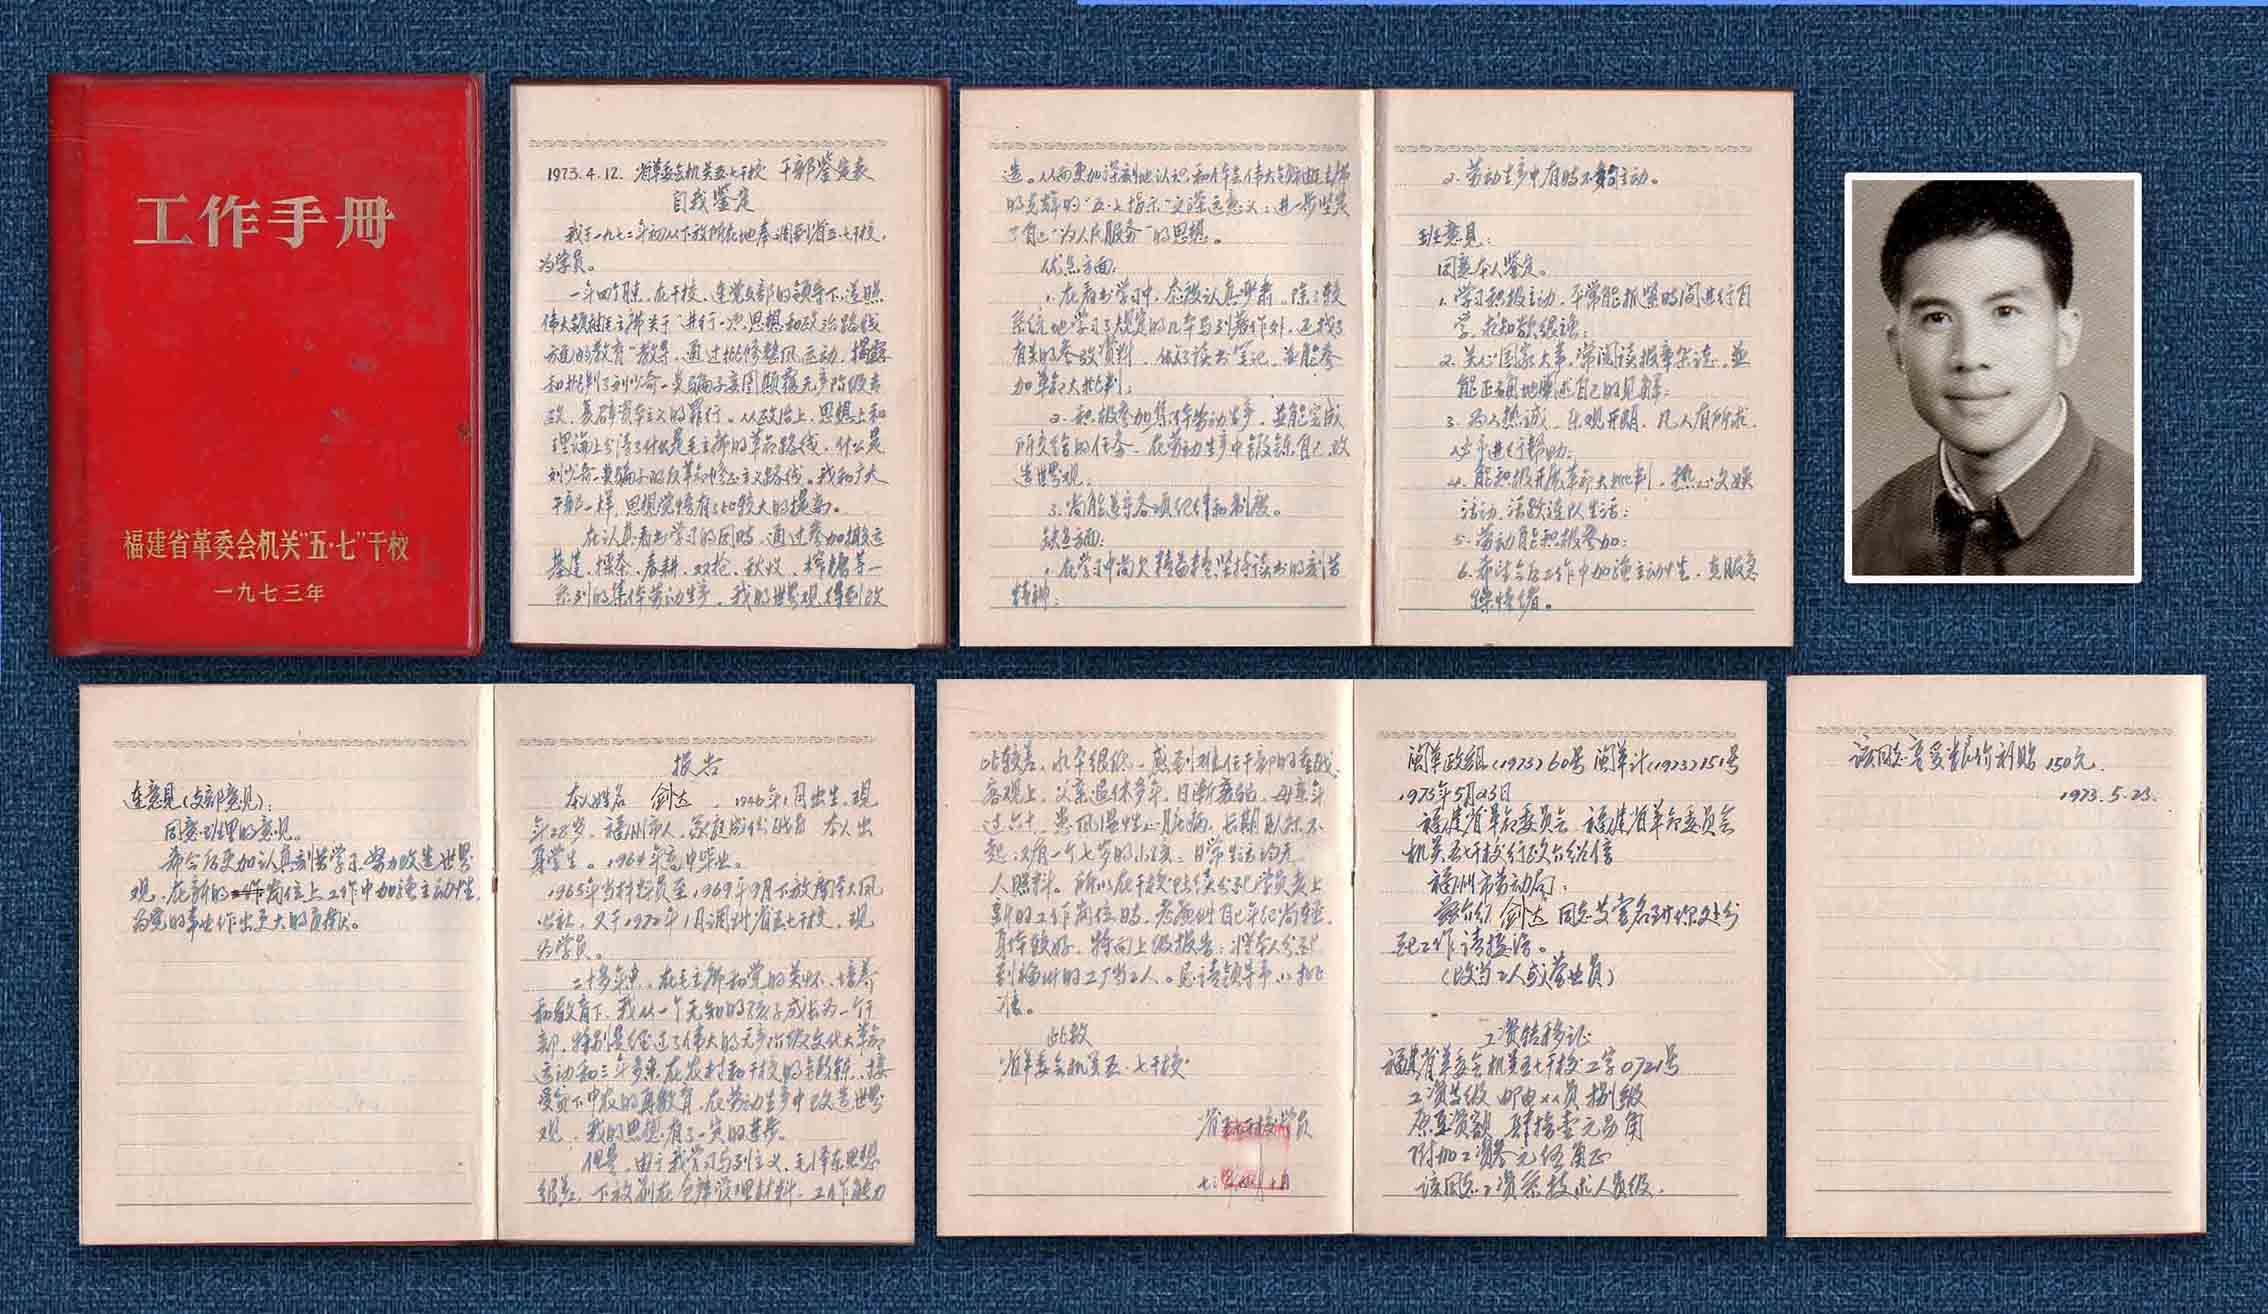 工作手册
福建省革委会机关“五·七”干校
一九七三年
1973.4.12. 省革委会机关五七干校 干部鉴定表
自我鉴定
我于一九七二年初从下放所在地奉调到省五七干校,
为学员。
一年四个月来,在干校、连党支部的领导下,遵照
伟大领袖毛主席关于“进行一次思想和政治路线
方面的教育”教导,通过批修整风运动,揭露
和批判了刘少奇一类骗子妄图颠覆无产阶级专
政、复辟资本主义的罪行。从政治上、思想上和
理论上分清了什么是毛主席的革命路线,什么是
刘少奇一类骗子的反革命修正主义路线。我和广大
干部一样,思想觉悟有了比较大的提高。
在认真看书学习的同时,通过参加搬运
基建、採茶、春耕、双抢、秋收、榨糖等一
系列的集体劳动生产,我的世界观得到改
造。从而更加深刻地认识和体会伟大领袖毛主席
的光辉的“五·七指示”更深远意义;进一步坚定
了自己“为人民服务”的思想。
优点方面:
1. 在看书学习中,态度认真严肃。除了较
系统地学习了规定的几本马列著作外,还找了
有关的参考资料,做了读书笔记,並能参
加革命大批判;
2. 积极参加集体劳动生产,並能完成
所交给的任务,在劳动生产中锻鍊自己,改
造世界观。
3. 尚能遵守各项纪律和制度。
缺点方面:
1. 在学习中尚欠精益求精,坚持读书的刻苦
精神;
2. 劳动生产中有时不够主动。
班意见:
同意本人鉴定。
1. 学习积极主动,平常能抓紧时间进行自
学,求知欲很强;
2. 关心国家大事,常阅读报章杂志,並
能正确地阐述自己的见解;
3. 为人热诚,乐观开朗,凡人有所求,
必予进行帮助;
4. 能积极开展革命大批判,热心文娱
活动,活跃连队生活;
5. 劳动能积极参加;
6. 希望今后工作中加强主动性,克服急
躁情绪。
连意见(支部意见):
同意班里的意见。
希今后更加认真刻苦学习,努力改造世界
观,在新的工作岗位上工作中加强主动性,
为党的事业作出更大的贡献。
报告
本人姓名 剑达 ,1946年1月出生,现
年28岁,福州市人,家庭成份 职员 本人出
身学生。1964年高中毕业。
1965年当材料员至1969年9月下放
公社,又于1972年1月调到省五七干校,现
为学员。
二十多年来,在毛主席和党的关怀、培养
和教育下,我从一个无知的孩子成长为一个干
部,特别是经过了伟大的无产阶级文化大革命
运动和三年多来在农村和干校的锻鍊,接
受贫下中农的再教育,在劳动生产中改造世界
观,我的思想有了一定的进步。
但是,由于我学习马列主义、毛泽东思想
很差,下放前在仓库管理材料,工作能力
比较差,水平很低,感到难任干部的重职,
客观上,父亲退休多年,日渐衰弱,母亲年
过六十,患风湿性心脏病,长期卧床不
起,又有一个七岁的小孩,日常生活均无
人照料。所以在干校继续分配学员走上
新的工作岗位时,考虑到自己年纪尚轻,
身体较好,特向上级报告:将本人分配
到福州的工厂当工人。恳请领导予以批
准。
此致
省革委会机关五·七干校
省五七干校学员
闽革政组(1973)60号 闽革计(1973)151号
1973年5月23日
福建省革命委员会、福建省革命委员会
机关五七干校行政介绍信
福州市劳动局:
兹介绍 剑达 同志 壹名到你处分
配工作,请接洽。
(改当工人或营业员)
工资转移证
福建省革委会机关五七干校 工字0721号
工资等级 邮电××员 捌级
原工资额 肆拾壹元 角
附加工资叁元伍角正
该同志工资系技术人员级。
该同志享受粮价补贴 1.50元。
1973.5.23.